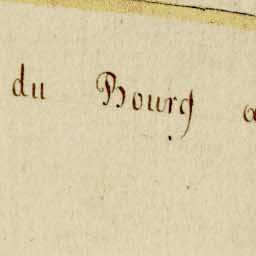 du Bourg